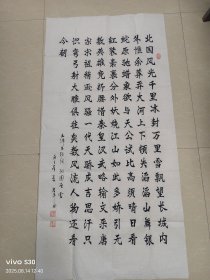 北国风光千里冰封万里雪飘望长城内
外惟余莽莽大河上下顿失滔滔山舞银
蛇原驰蜡象欲与天公试比高须晴日看
红装素裹分外妖娆江山如此多娇引无
数英雄竞折腰惜秦皇汉武略输文采唐
宗宋祖稍逊风骚一代天骄成吉思汗只
识弯弓射大雕俱往矣数风流人物还看
今朝
毛泽东诗词 沁园春雪
vivo
2025.06.14